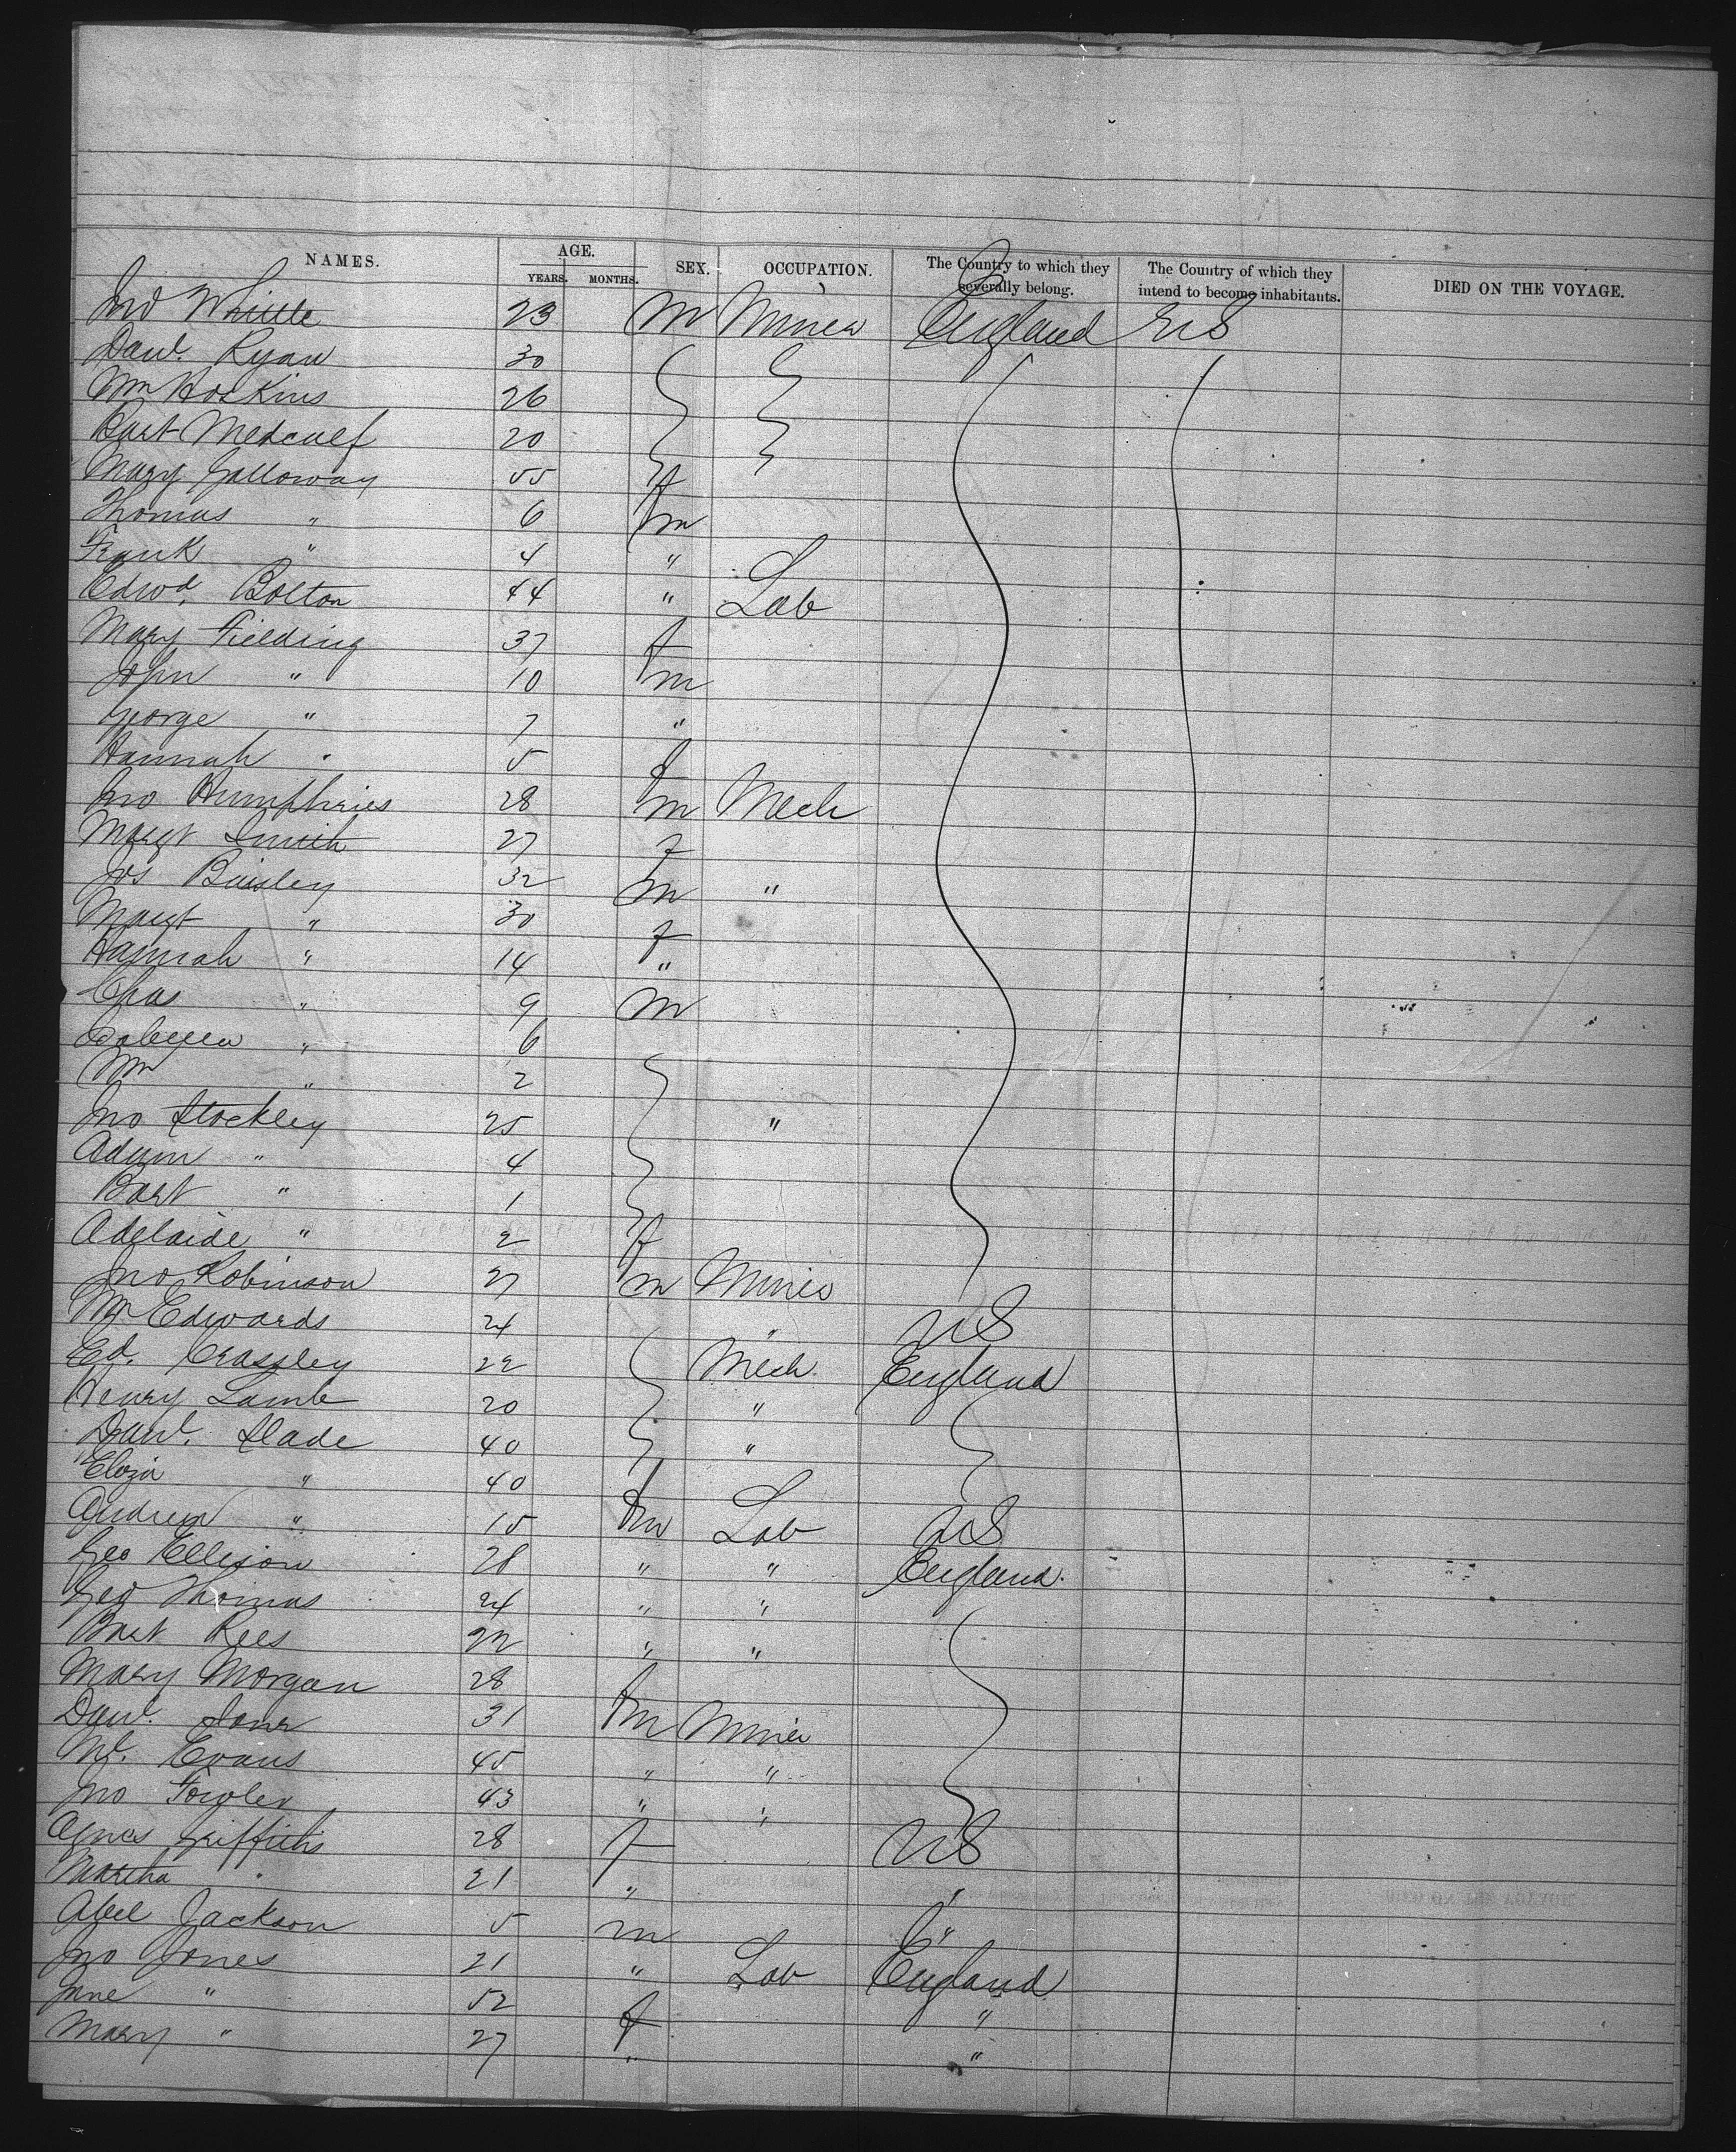 NAMES. AGE. YEARS. MONTHS. SEX. OCCUPATION. The Country to which they severally belong. The Country of which they intend to become inhabitants. DIED ON THE VOYAGE.
Jno Whittle 23 m Miner England US
Danl. Ryan 30
Wm Hoskins 26
Bart Medcalf 20
Mary Galloway 55 f
Thomas " 6 m
Frank " 4 "
Edwd. Bolton 44 " Lab
Mary Fielding 37 f
John " 10 m
George " 7 "
Hannah " 5 f
Jno Humphries 28 m Mech
Margt Smith 27 f
Jos Binsley 32 m "
Margt " 30 f
Hannah " 14 "
Chas " 9 m
Isabella " 6
Wm " 2
Jno Stockley 25 "
Adam " 4
Bart " 1
Adelaide " 2 f
Jno Robinson 27 m Miner
Wm Edwards 24 " US
Ed. Crassley 22 Mech. England
Henry Lamb 20 "
Danl. Slade 40 "
Eliza " 40 f
Andrew " 15 m Lab US
Geo Ellison 28 " " England.
Geo Thomas 24 " "
Bart Rees 22 " "
Mary Morgan 28 f
Danl. Jones 31 m Miner
Evans 45 " "
Jno Fowler 43 " "
Agnes Griffiths 28 f US
Martha " 21 " "
Abel Jackson 5 m "
Jno Jones 21 " Lab England
Jane " 52 f "
Mary " 27 " "